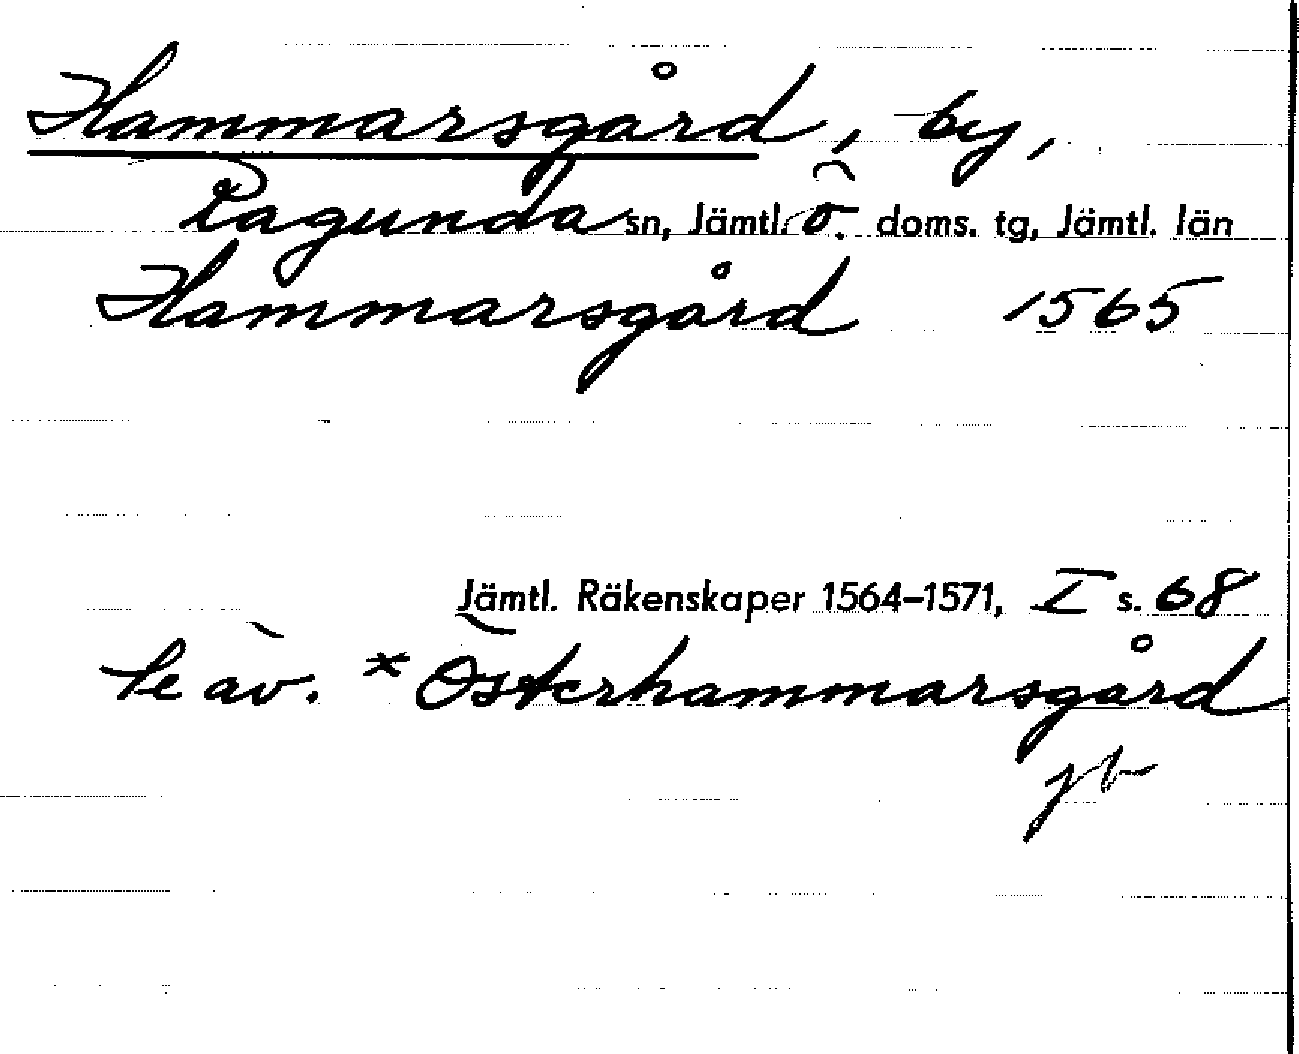 Hammarsgård, by,
Ragunda sn, Jämtl. ö. doms. tg, Jämtl. län
Hammarsgård 1565
Jämtl. Räkenskaper 1564–1571, I s. 68
Se äv. * Österhammarsgård